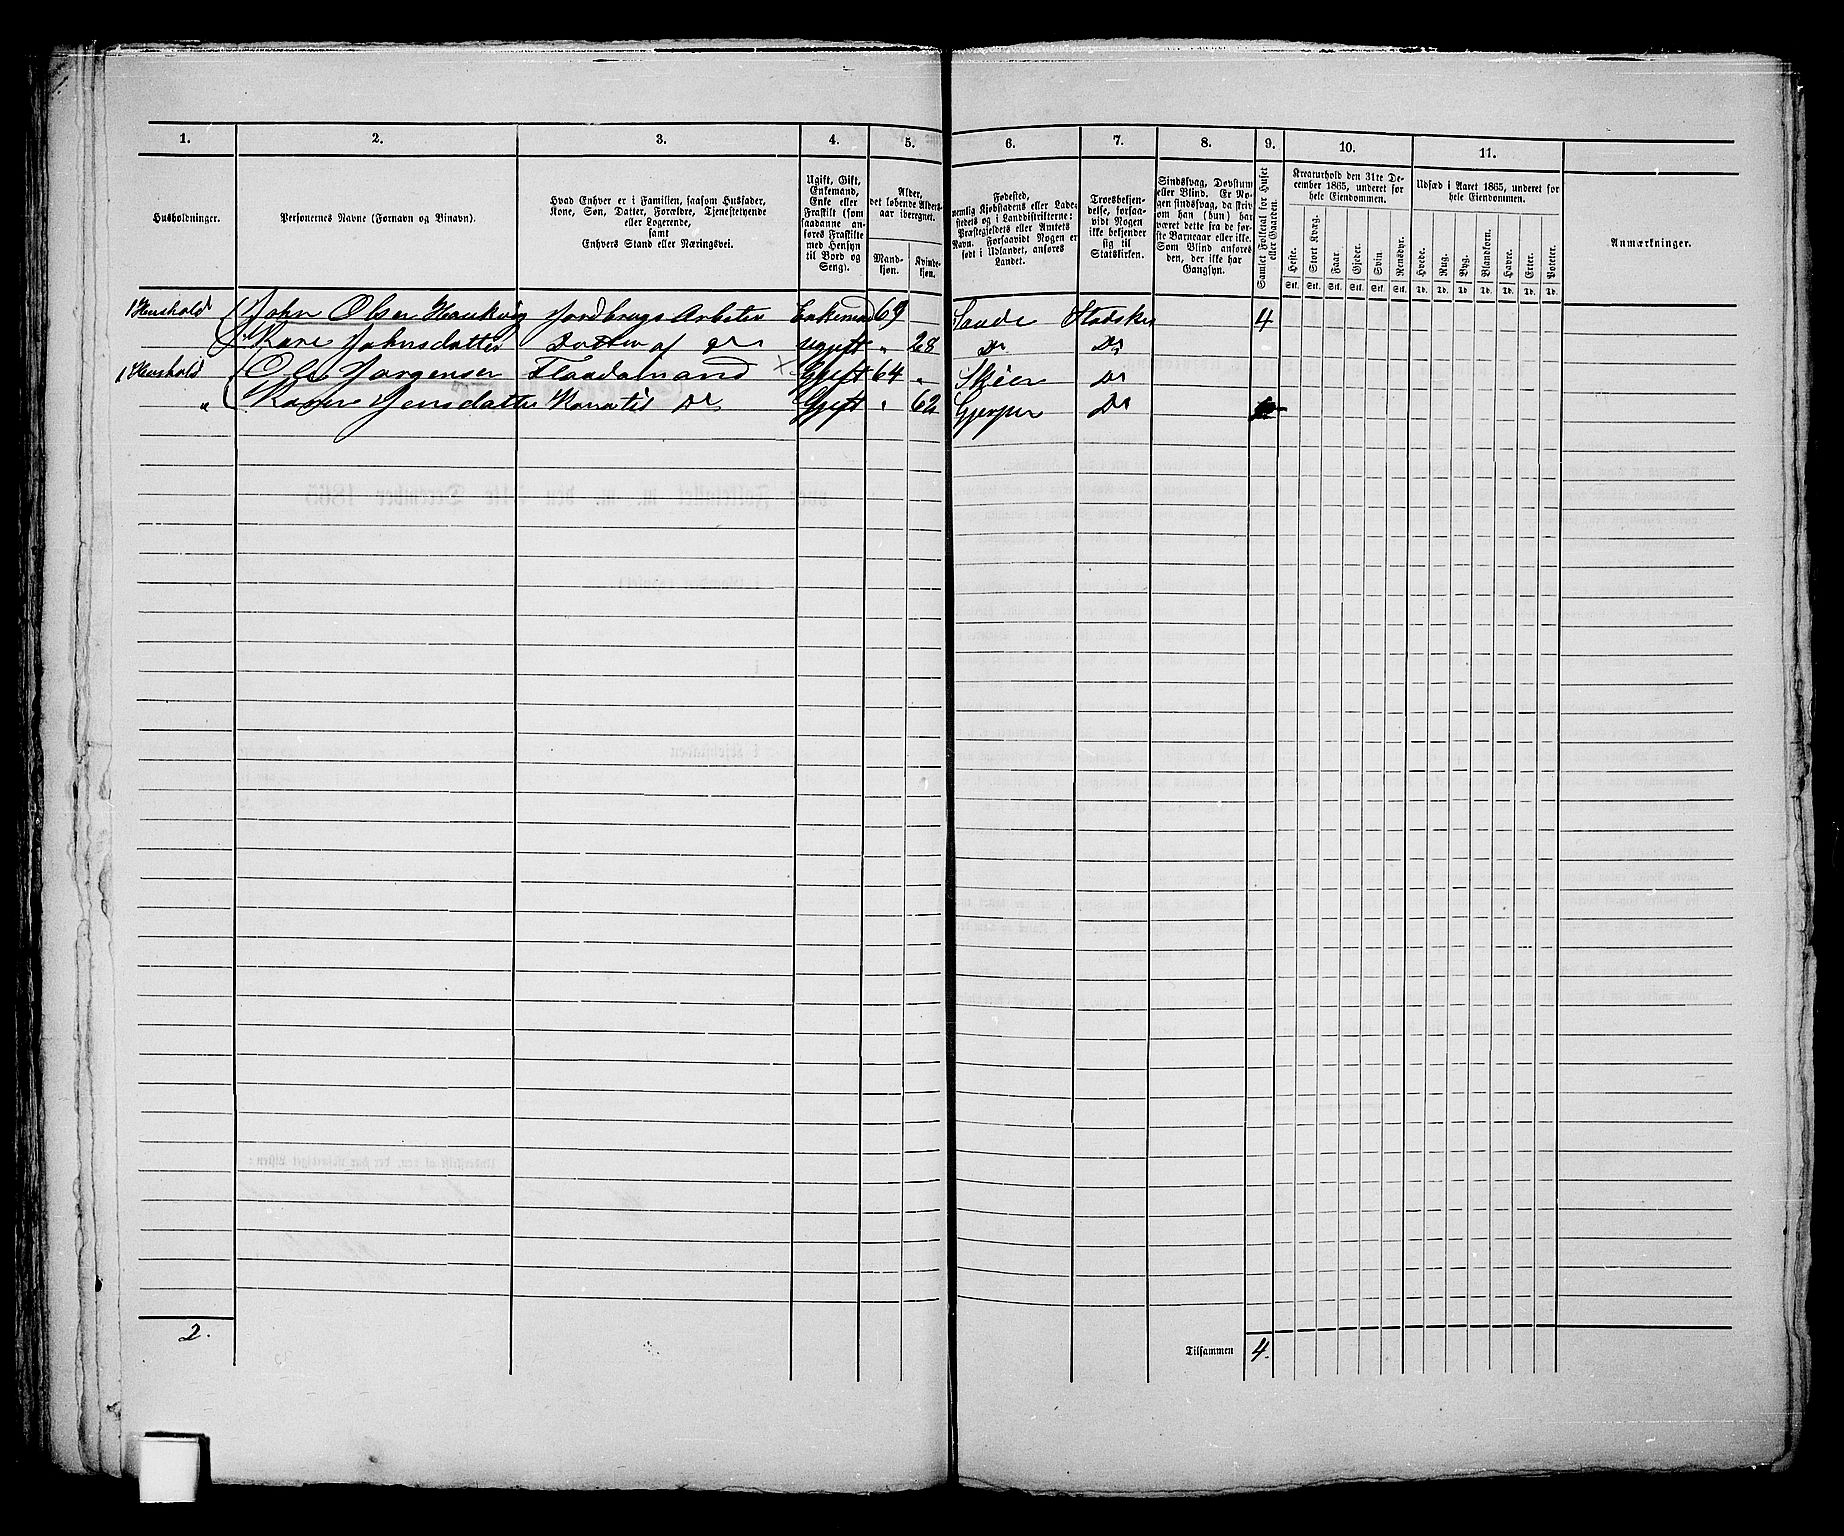 1. 2. 3. 4. 5. 6. 7. 8. 9. 10. 11.
Husholdninger.
Personernes Navne (Fornavn og Binavn).
Hvad Enhver er i Familien, saasom Husfader,
Kone, Søn, Datter, Forældre, Tjenestetyende
eller Logerende,
samt
Enhvers Stand eller Næringsvei.
Ugift, Gift,
Enkemand,
Enke eller
Fraskilt (som
saadanne an-
føres Fraskilte
med Hensyn
til Bord og
Seng).
Alder,
det løbende Alders-
aar iberegnet.
Mand-
kjøn.
Kvinde-
kjøn.
Fødested,
nemlig Kjøbstadens eller Lade-
stedets og i Landdistrikterne:
Præstegjeldets eller Amtets
Navn. Forsaavidt Nogen er
født i Udlandet, anføres
Landet.
Troesbekjen-
delse, forsaa-
vidt Nogen
ikke bekjender
sig til
Statskirken.
Sindssvag, Døvstum
eller Blind. Er No-
gen sindssvag, da skriv
om han (hun) har
været dette fra de før-
ste Barneaar eller ikke.
Som Blind anføres
den, der ikke har
Gangsyn.
Samlet Folketal for Huset
eller Gaarden.
Kreaturhold den 31te De-
cember 1865, underet for
hele Eiendommen.
Heste. Stort Kvæg. Faar. Gjeder. Svin Rensdyr.
Stk. Stk. Stk. Stk. Stk. Stk.
Udsæd i Aaret 1865, underet for
hele Eiendommen.
Hvede. Rug. Byg. Blandkorn. Havre. Erter. Poteter.
Td. Td. Td Td. Td. Td. Td.
Anmærkninger.
1 Hushold John Olsen Haukvig Jordbrugs Arbeider Enkemand 69 Sande Statskir 4
Kare Johnsdatter Datter af do ugift " 28 Do Do
1 Hushold Ole Jørgensen Flaadamand X Gjift 64 " Skien Do
" Karen Jensdatter Kone til Do Gjift " 62 Gjerpen Do
2. Tilsammen 4.